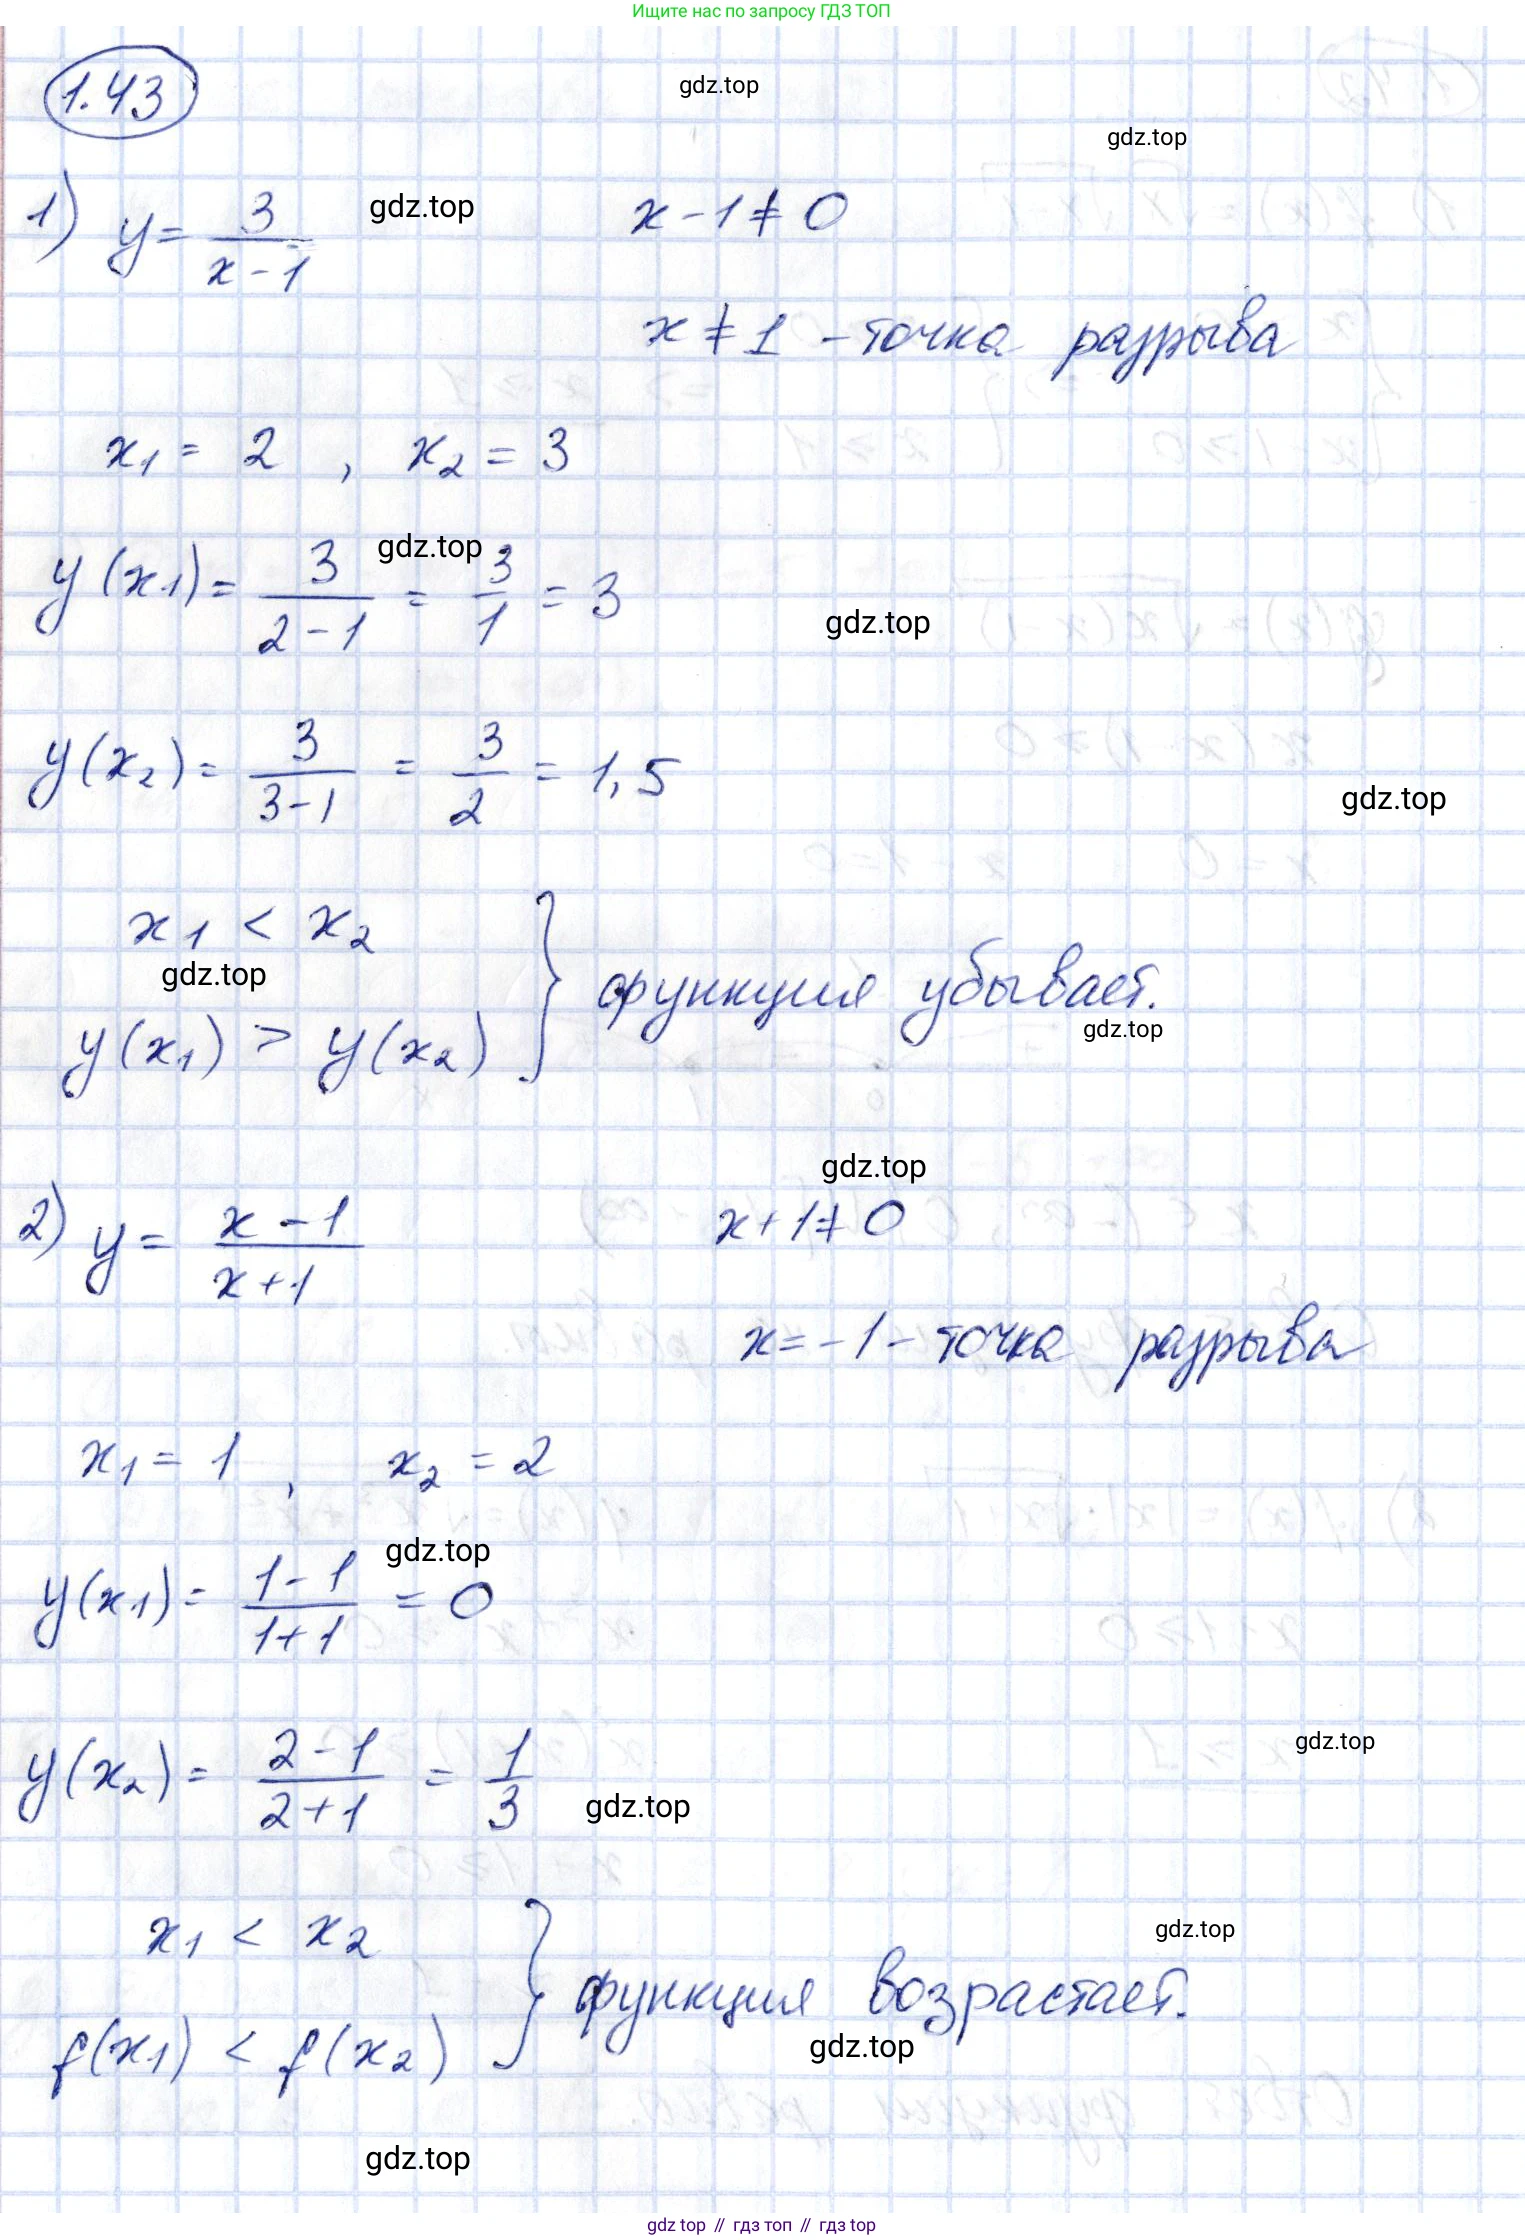 Ищите нас по запросу ГДЗ ТОП
1.43
gdz.top
gdz.top
1) y = 3/(x-1) gdz.top x-1≠0
x≠1 - точка разрыва
x₁ = 2 , x₂ = 3
y(x₁) = 3/(2-1) = 3/1 = 3
gdz.top
gdz.top
y(x₂) = 3/(3-1) = 3/2 = 1,5
gdz.top
x₁ < x₂
gdz.top
y(x₁) > y(x₂) } функция убывает.
gdz.top
gdz.top
2) y = (x-1)/(x+1) x+1≠0
x=-1 - точка разрыва
x₁ = 1 , x₂ = 2
gdz.top
y(x₁) = (1-1)/(1+1) = 0
gdz.top
y(x₂) = (2-1)/(2+1) = 1/3
gdz.top
x₁ < x₂
gdz.top
f(x₁) < f(x₂) } функция возрастает.
gdz.top
gdz.top
gdz top // гдз топ // гдз top